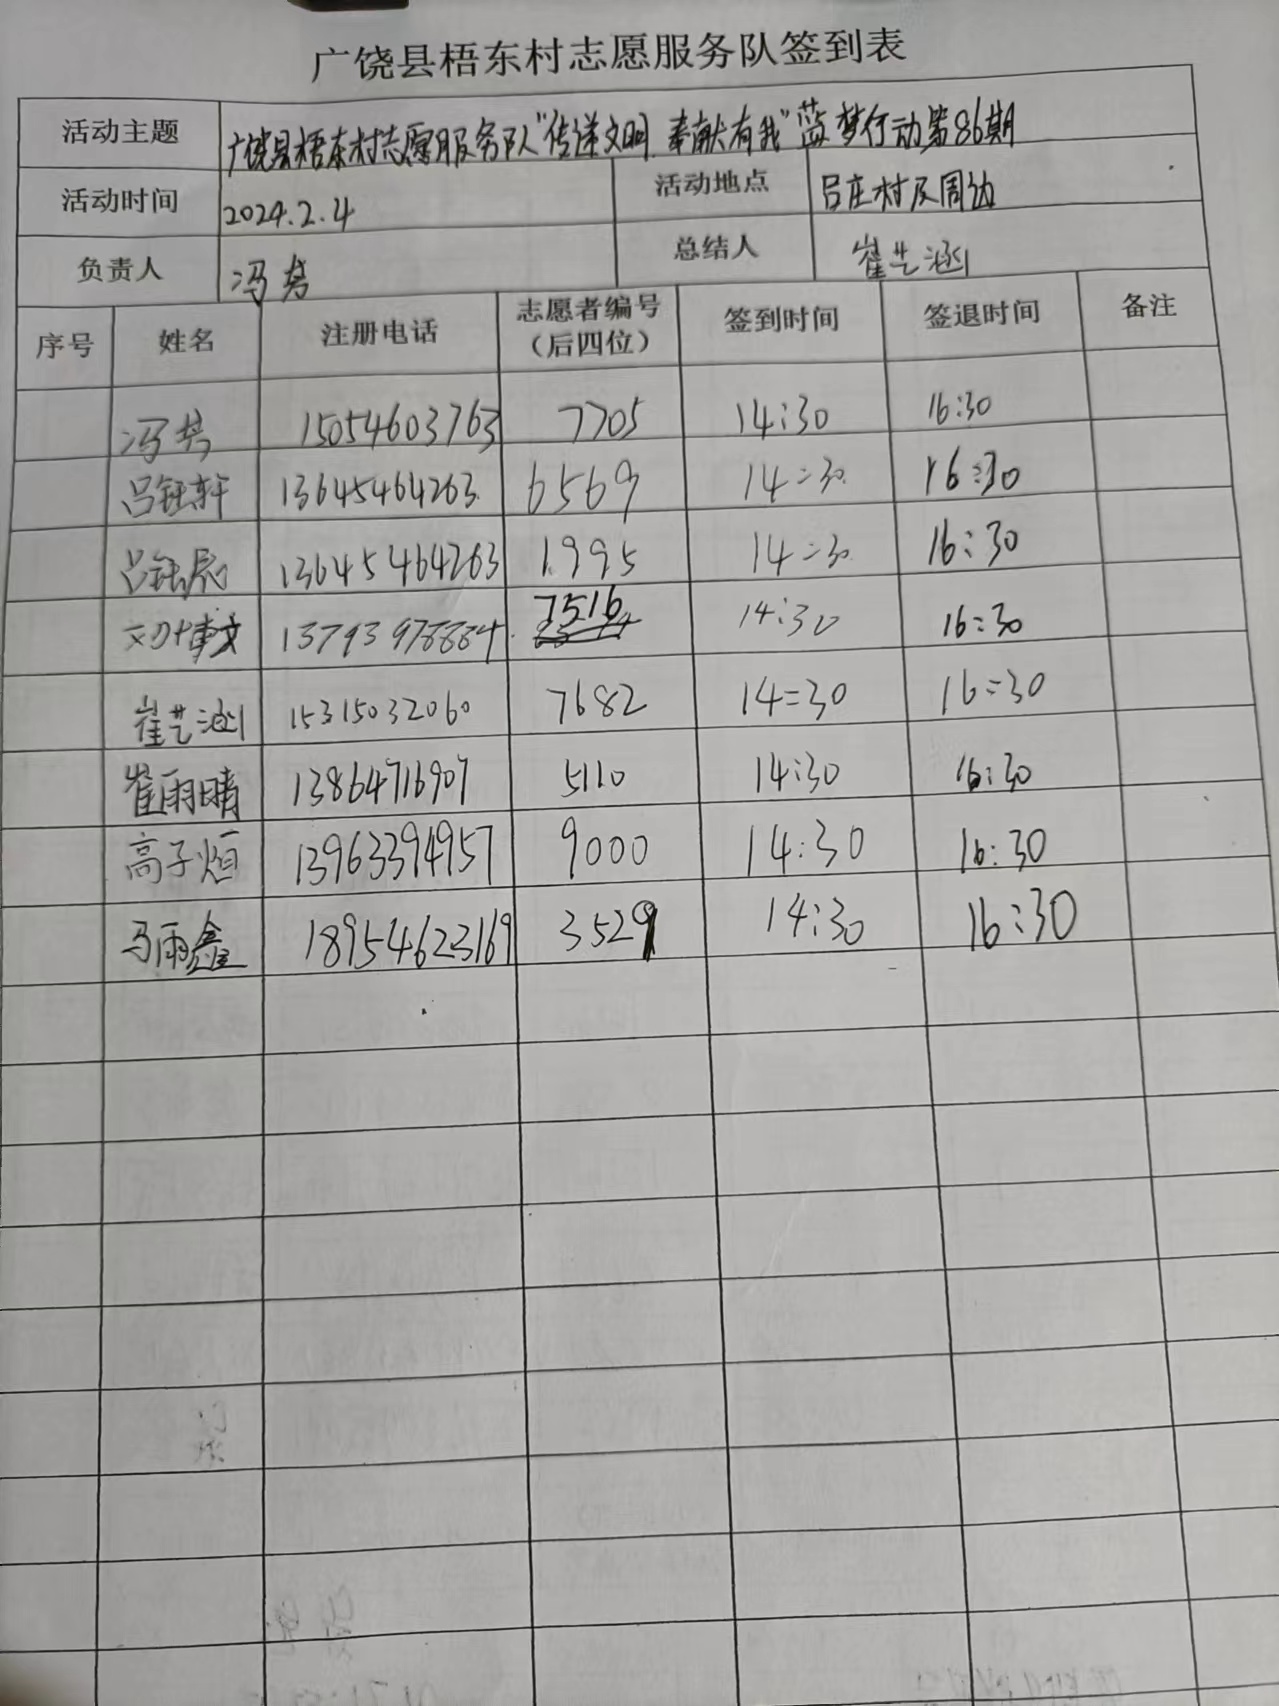 广饶县梧东村志愿服务队签到表
活动主题 广饶县梧东村志愿服务队“传递文明 奉献有我”蓝梦行动第86期
活动时间 2024.2.4 活动地点 吕庄村及周边
负责人 冯芳 总结人 崔艺涵
序号 姓名 注册电话 志愿者编号（后四位） 签到时间 签退时间 备注
冯芳 15054603763 7705 14:30 16:30
吕钰轩 13645464263 6569 14:30 16:30
吕钰辰 13645464263 1995 14:30 16:30
刘博文 13793978884 7516 14:30 16:30
崔艺涵 15315032060 7682 14:30 16:30
崔雨晴 13864716907 5110 14:30 16:30
高子烜 13963394957 9000 14:30 16:30
马雨鑫 18954623169 3529 14:30 16:30